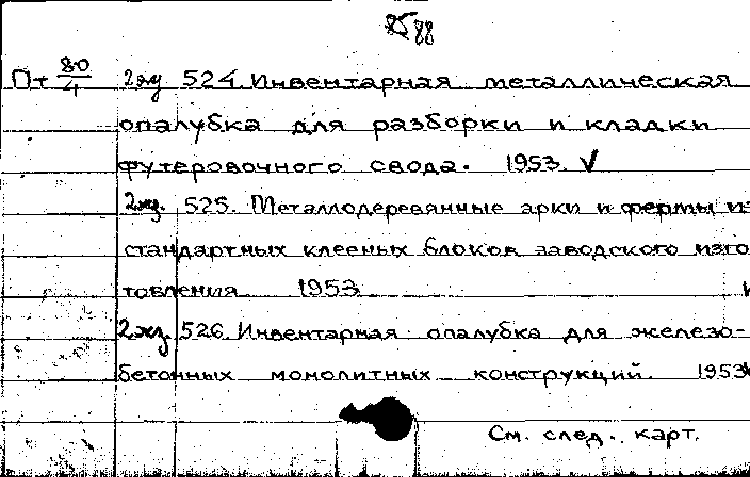 88
Пт 80/4 2экз 524. Инвентарная металлическая
опалубка для разборки и кладки
футеровочного свода. 1953. V
2экз. 525. Металлодеревянные арки и фермы из
стандартных клееных блоков заводского изго
товления 1953
2экз. 526. Инвентарная опалубка для железо-
бетонных монолитных конструкций. 1953
См. след. карт.